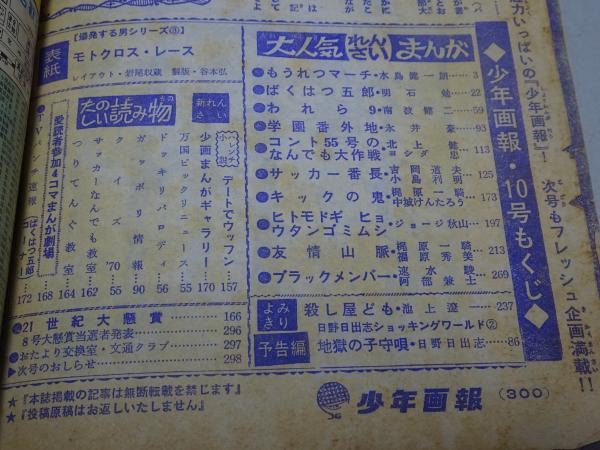 力いっぱいの『少年画報』！
次号もフレッシュ企画満載!!
◆少年画報・10号もくじ◆
大人気れんさいまんが
●もうれつマーチ・水島健一朗……3
●ばくはつ五郎・明石勉……22
●われら9・南波健二……59
●学園番外地・永井豪……93
●コント55号のなんでも大作戦・北上健 ヨシダ忠……113
●サッカー番長・吉岡道夫 小島利明……125
●キックの鬼・梶原一騎 中城けんたろう……173
●ヒトモドギヒョウタンゴミムシ・ジョージ秋山……197
●友情山脈・梶原一騎 福原秀美……213
●ブラックメンバー・速水駿 阿部兼士……269
よみきり
殺し屋ども・池上遼一……237
予告編
日野日出志ショッキングワールド②
地獄の子守唄・日野日出志……86
表紙
【爆発する男シリーズ③】
モトクロス・レース
レイアウト・岩尾収蔵 製版・谷本弘
たのしい読み物
新れんさい
デートでウッフン……157
少画まんがギャラリー……170
万国ビックリニュース……55
ドッキリパロディ……56
ガッポリ情報……90
クイズ'70……55
サッカーなんでも教室……162
つりてんぐ教室……164
愛読者参加4コマまんが劇場……168
●TVパンチ速報(ばくはつ五郎コーナー)……172
●21世紀大懸賞……166
8号大懸賞当選者発表……296
●おたより交換室・文通クラブ……297
▶次号のおしらせ……298
★『本誌掲載の記事は無断転載を禁じます』
★『投稿原稿はお返しいたしません』
少年画報
(300)